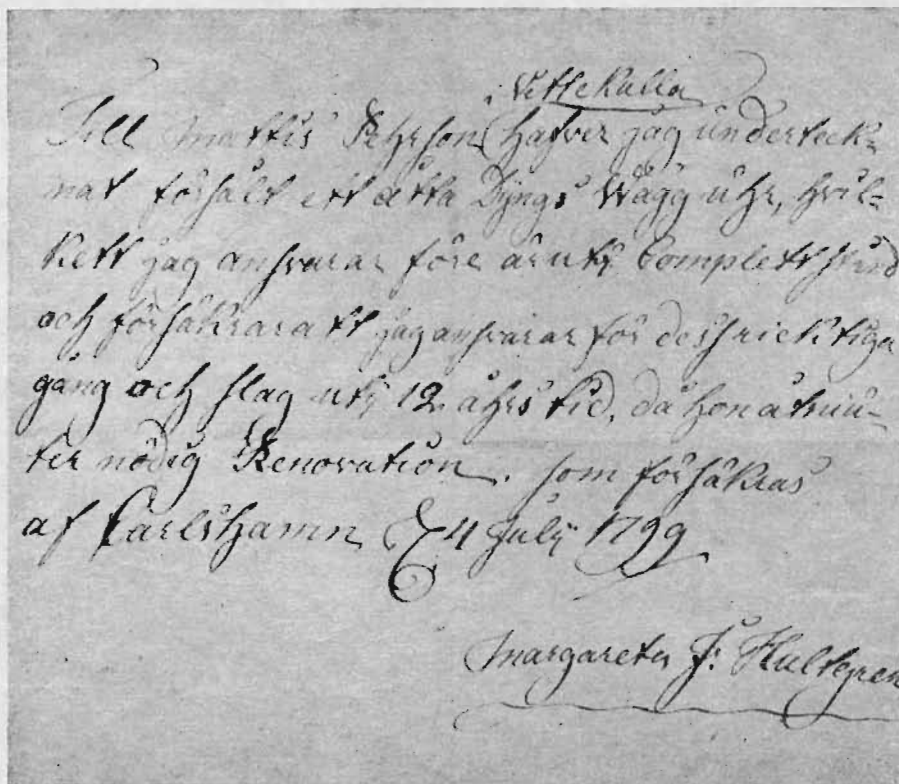 i Vettekulla
Till Mattis Pehrson hafver jag underteck-
nat försålt ett åtta Dyngs Wägg uhr, hvil-
kett jag ansvarar före är uti Complett stånd
och försäkrar att jag ansvarar för dess ricktiga
gång och slag uti 12 åhrs tid, då hon åtniu-
ter nödig Renovation. som försäkras
af Carlshamn D 4 July 1799
Margareta J: Hultgren